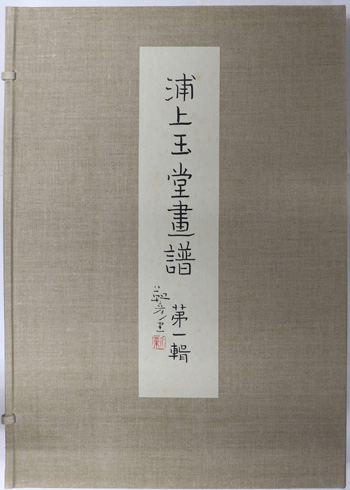 浦上玉堂畫譜
第一輯